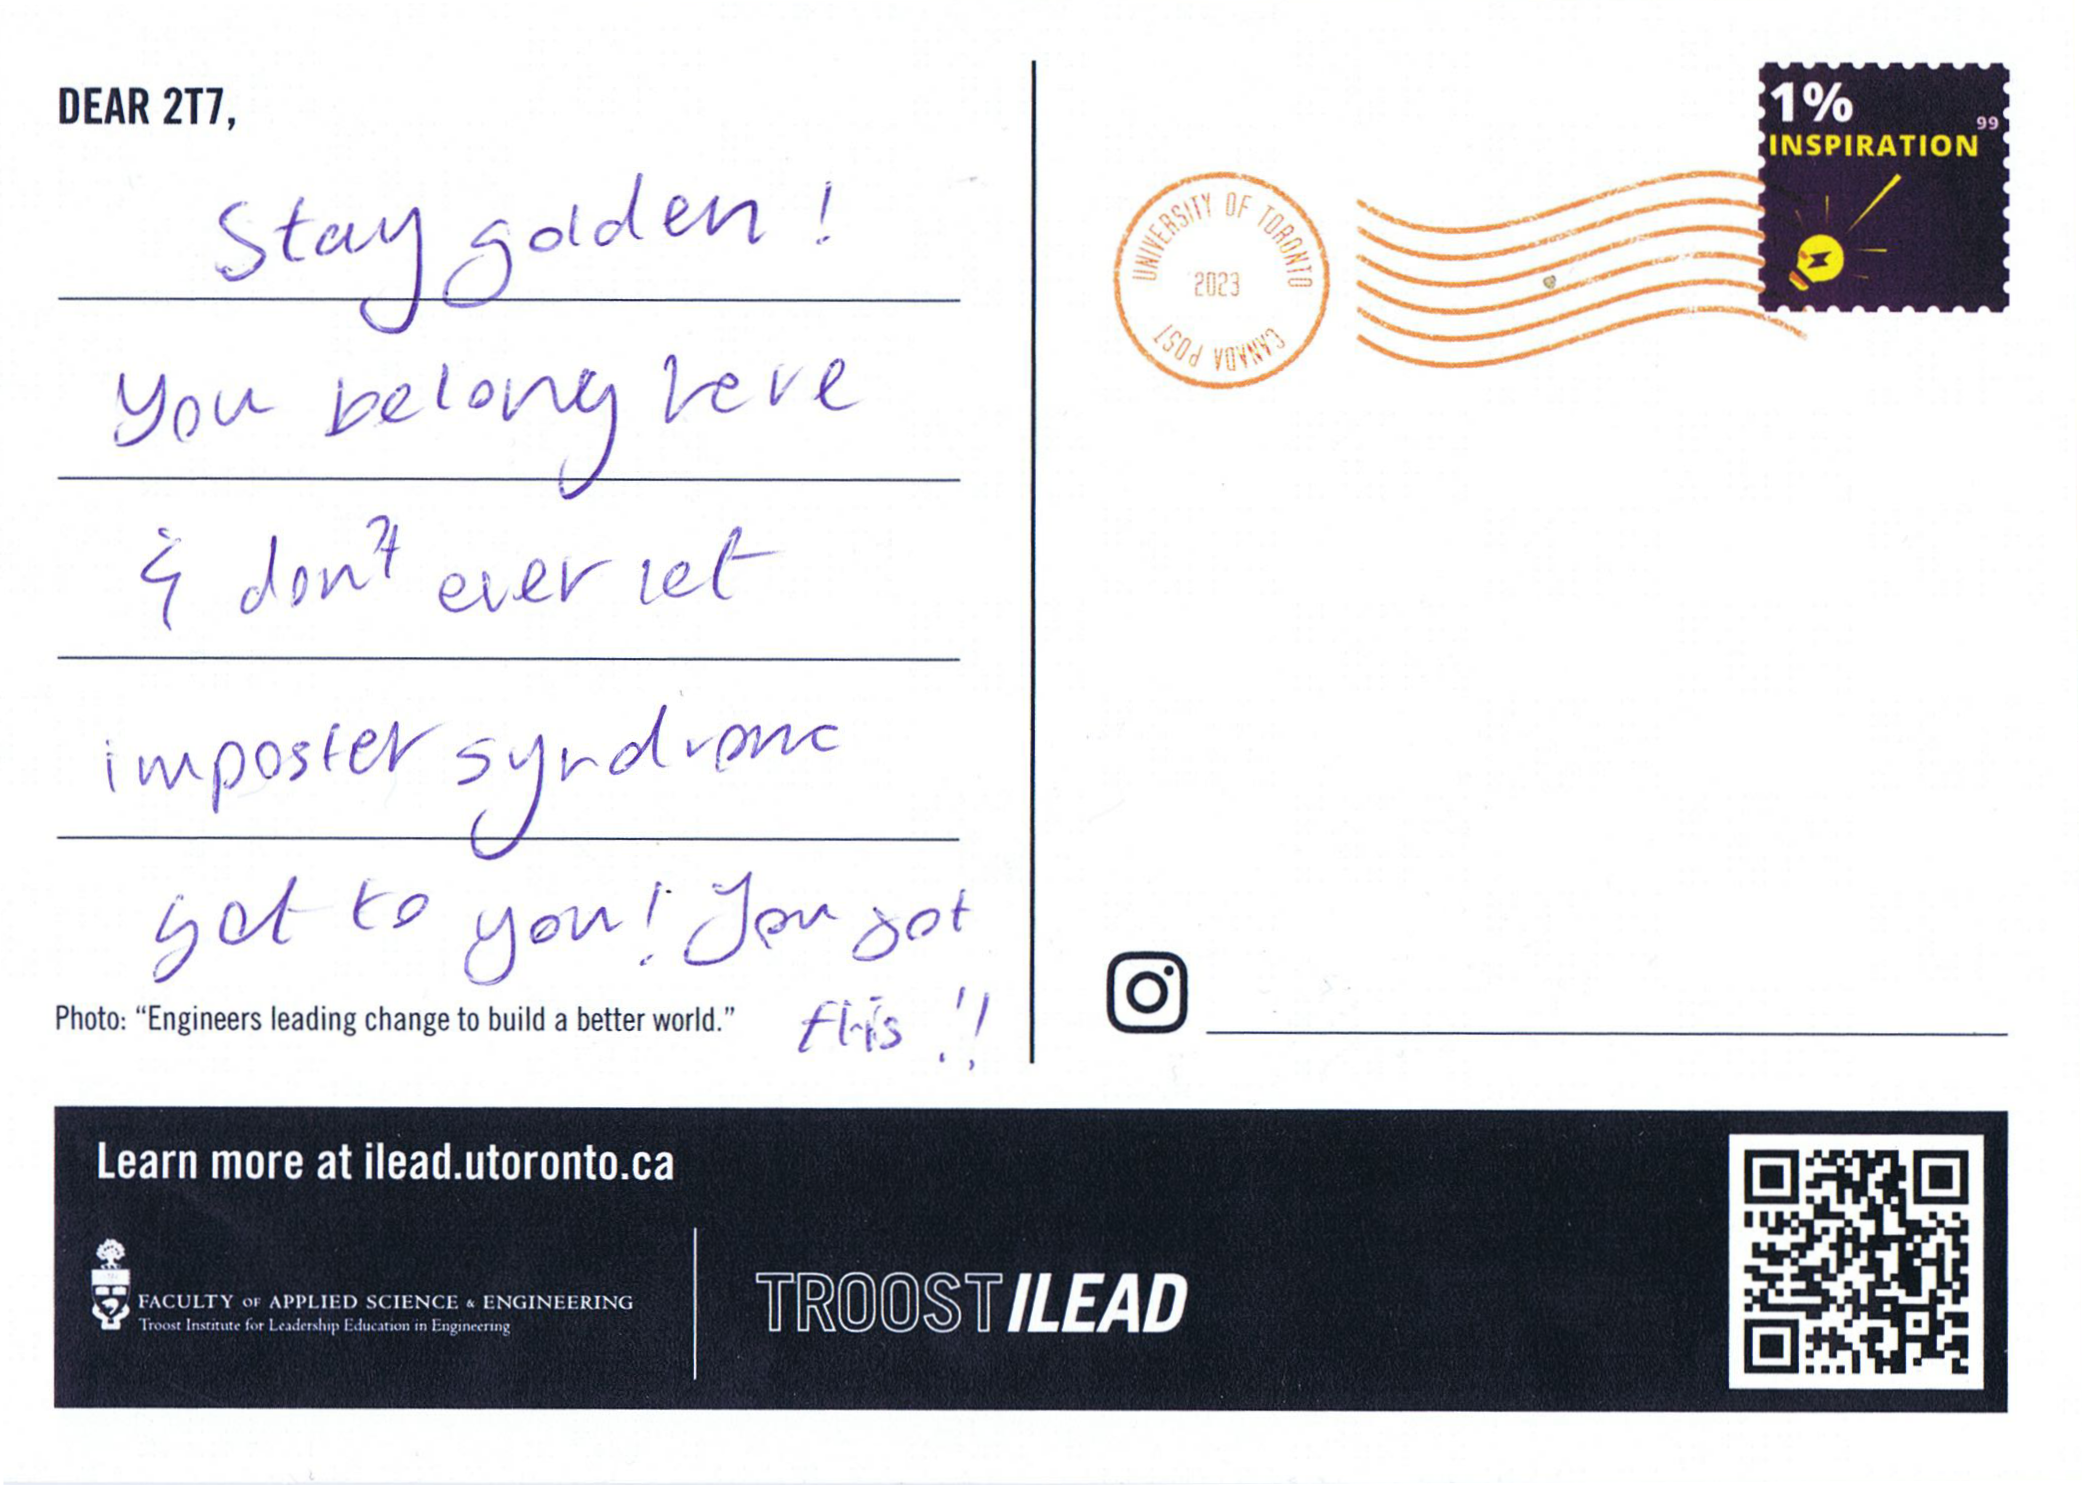 DEAR 2T7,
Stay golden!
You belong here
& don't ever let
imposter syndrome
get to you! You got
this!!
Photo: “Engineers leading change to build a better world.”
UNIVERSITY OF TORONTO
2023
CANADA POST
1%
99
INSPIRATION
Learn more at ilead.utoronto.ca
FACULTY OF APPLIED SCIENCE & ENGINEERING
Troost Institute for Leadership Education in Engineering
TROOST ILEAD